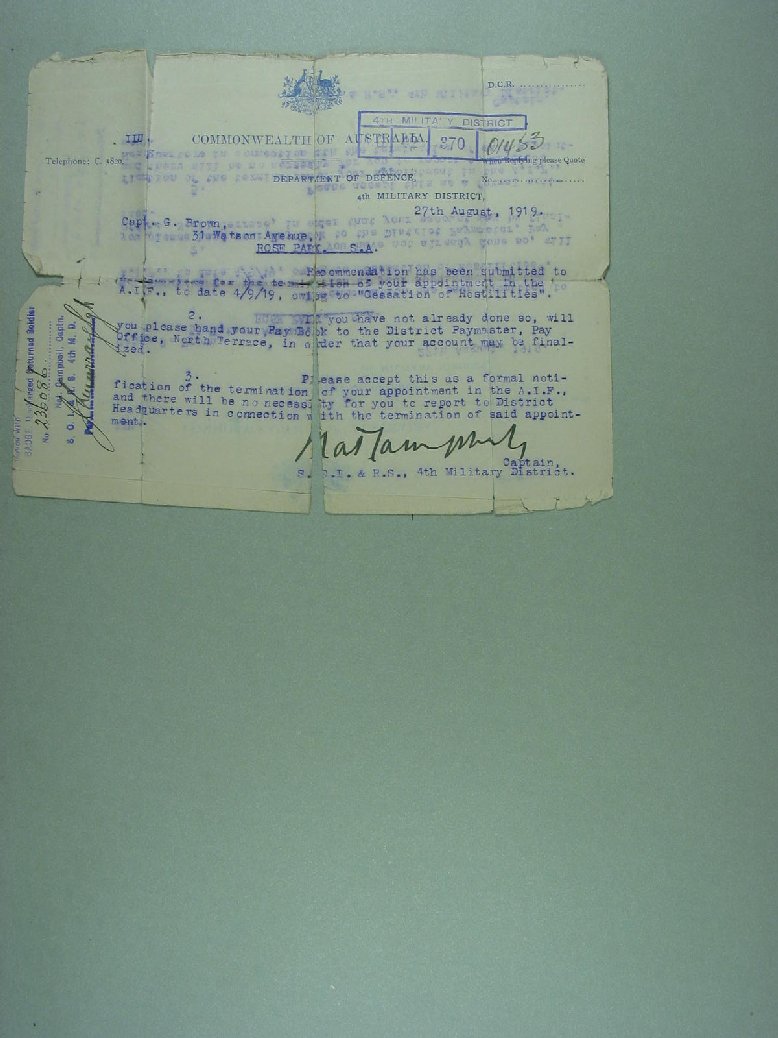 D.C.R. ................
4TH MILITARY DISTRICT
COMMONWEALTH OF AUSTRALIA.
370
Telephone: C.
when replying please Quote
No.
DEPARTMENT OF DEFENCE,
4th MILITARY DISTRICT,
27th August, 1919.
Capt. G. Brown,
31 Watson Avenue,
ROSE PARK. S.A.
Recommendation has been submitted to
for the termination of your appointment in the
A.I.F., to date 4/9/19, owing to "Cessation of Hostilities".
2. If you have not already done so, will
you please hand your Pay Book to the District Paymaster, Pay
Office, North Terrace, in order that your account may be final-
ized.
3. Please accept this as a formal noti-
fication of the termination of your appointment in the A.I.F.,
and there will be no necessity for you to report to District
Headquarters in connection with the termination of said appoint-
ment.
Captain,
& R.S., 4th Military District.
Returned Soldier
No.
Campbell, Captn.
4th M. D.